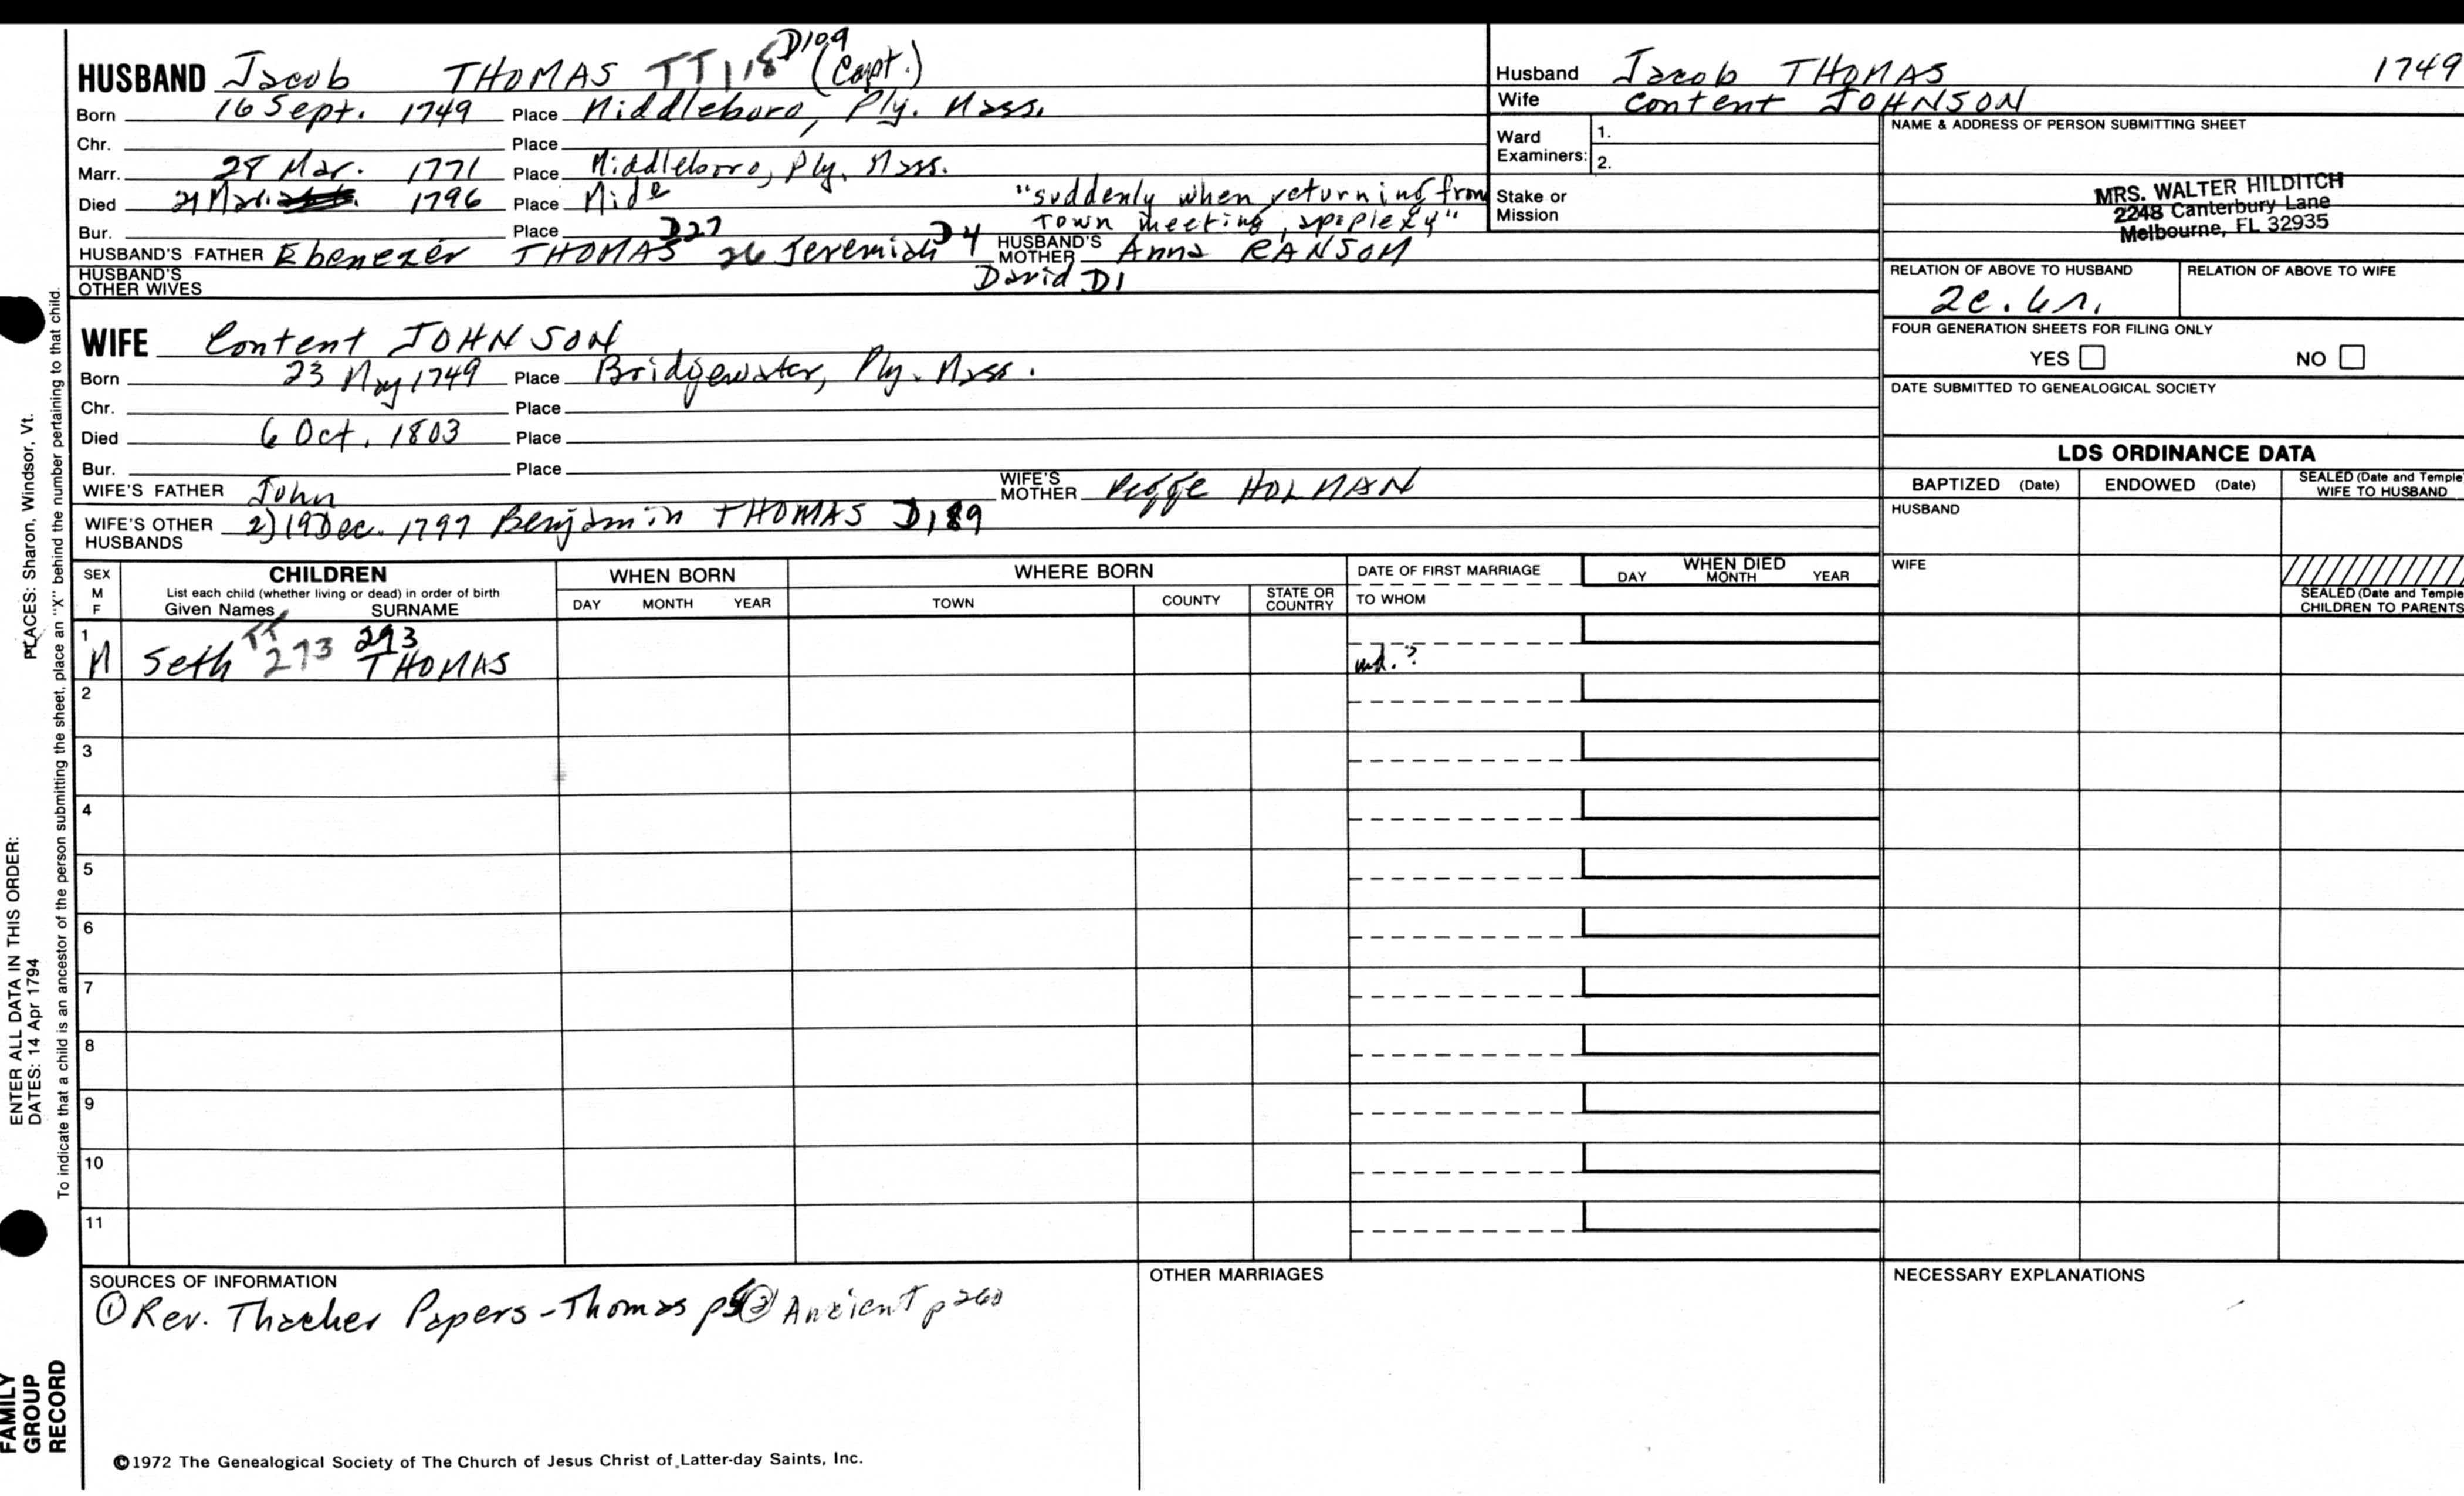 HUSBAND Jacob THOMAS TT118 D109 (Capt.)
Born 16 Sept. 1749 Place Middleboro, Ply. Mass.
Chr. Place
Marr. 28 Mar. 1771 Place Middleboro, Ply. Mass.
Died 21 Mar. 1796 Place Midd "suddenly when returning from
Bur. Place town meeting, apoplexy"
HUSBAND'S FATHER Ebenezer THOMAS D27 26 Jeremiah D4 HUSBAND'S MOTHER Anna RANSOM
HUSBAND'S OTHER WIVES David D1
Husband Jacob THOMAS 1749
Wife Content JOHNSON
Ward Examiners: 1.
2.
Stake or Mission
NAME & ADDRESS OF PERSON SUBMITTING SHEET
MRS. WALTER HILDITCH
2248 Canterbury Lane
Melbourne, FL 32935
RELATION OF ABOVE TO HUSBAND RELATION OF ABOVE TO WIFE
2c.
FOUR GENERATION SHEETS FOR FILING ONLY
YES NO
DATE SUBMITTED TO GENEALOGICAL SOCIETY
WIFE Content JOHNSON
Born 23 May 1749 Place Bridgewater, Ply. Mass.
Chr. Place
Died 6 Oct. 1803 Place
Bur. Place
WIFE'S FATHER John WIFE'S MOTHER HOLMAN
WIFE'S OTHER HUSBANDS 2) 19 Dec. 1797 Benjamin THOMAS D189
LDS ORDINANCE DATA
BAPTIZED (Date) ENDOWED (Date) SEALED (Date and Temple) WIFE TO HUSBAND
HUSBAND
WIFE
SEALED (Date and Temple) CHILDREN TO PARENTS
SEX M F
CHILDREN
List each child (whether living or dead) in order of birth
Given Names SURNAME
WHEN BORN
DAY MONTH YEAR
WHERE BORN
TOWN COUNTY STATE OR COUNTRY
DATE OF FIRST MARRIAGE
TO WHOM
WHEN DIED
DAY MONTH YEAR
1
M Seth TT 273 293 THOMAS
2
3
4
5
6
7
8
9
10
11
SOURCES OF INFORMATION
① Rev. Thacher Papers - Thomas Ancient p 260
OTHER MARRIAGES
NECESSARY EXPLANATIONS
©1972 The Genealogical Society of The Church of Jesus Christ of Latter-day Saints, Inc.
FAMILY GROUP RECORD
ENTER ALL DATA IN THIS ORDER:
DATES: 14 Apr 1794
PLACES: Sharon, Windsor, Vt.
To indicate that a child is an ancestor of the person submitting the sheet, place an "X" behind the number pertaining to that child.